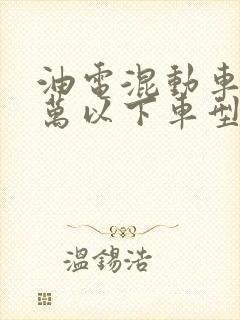 油電混動車
萬以下車型
溫錫浩